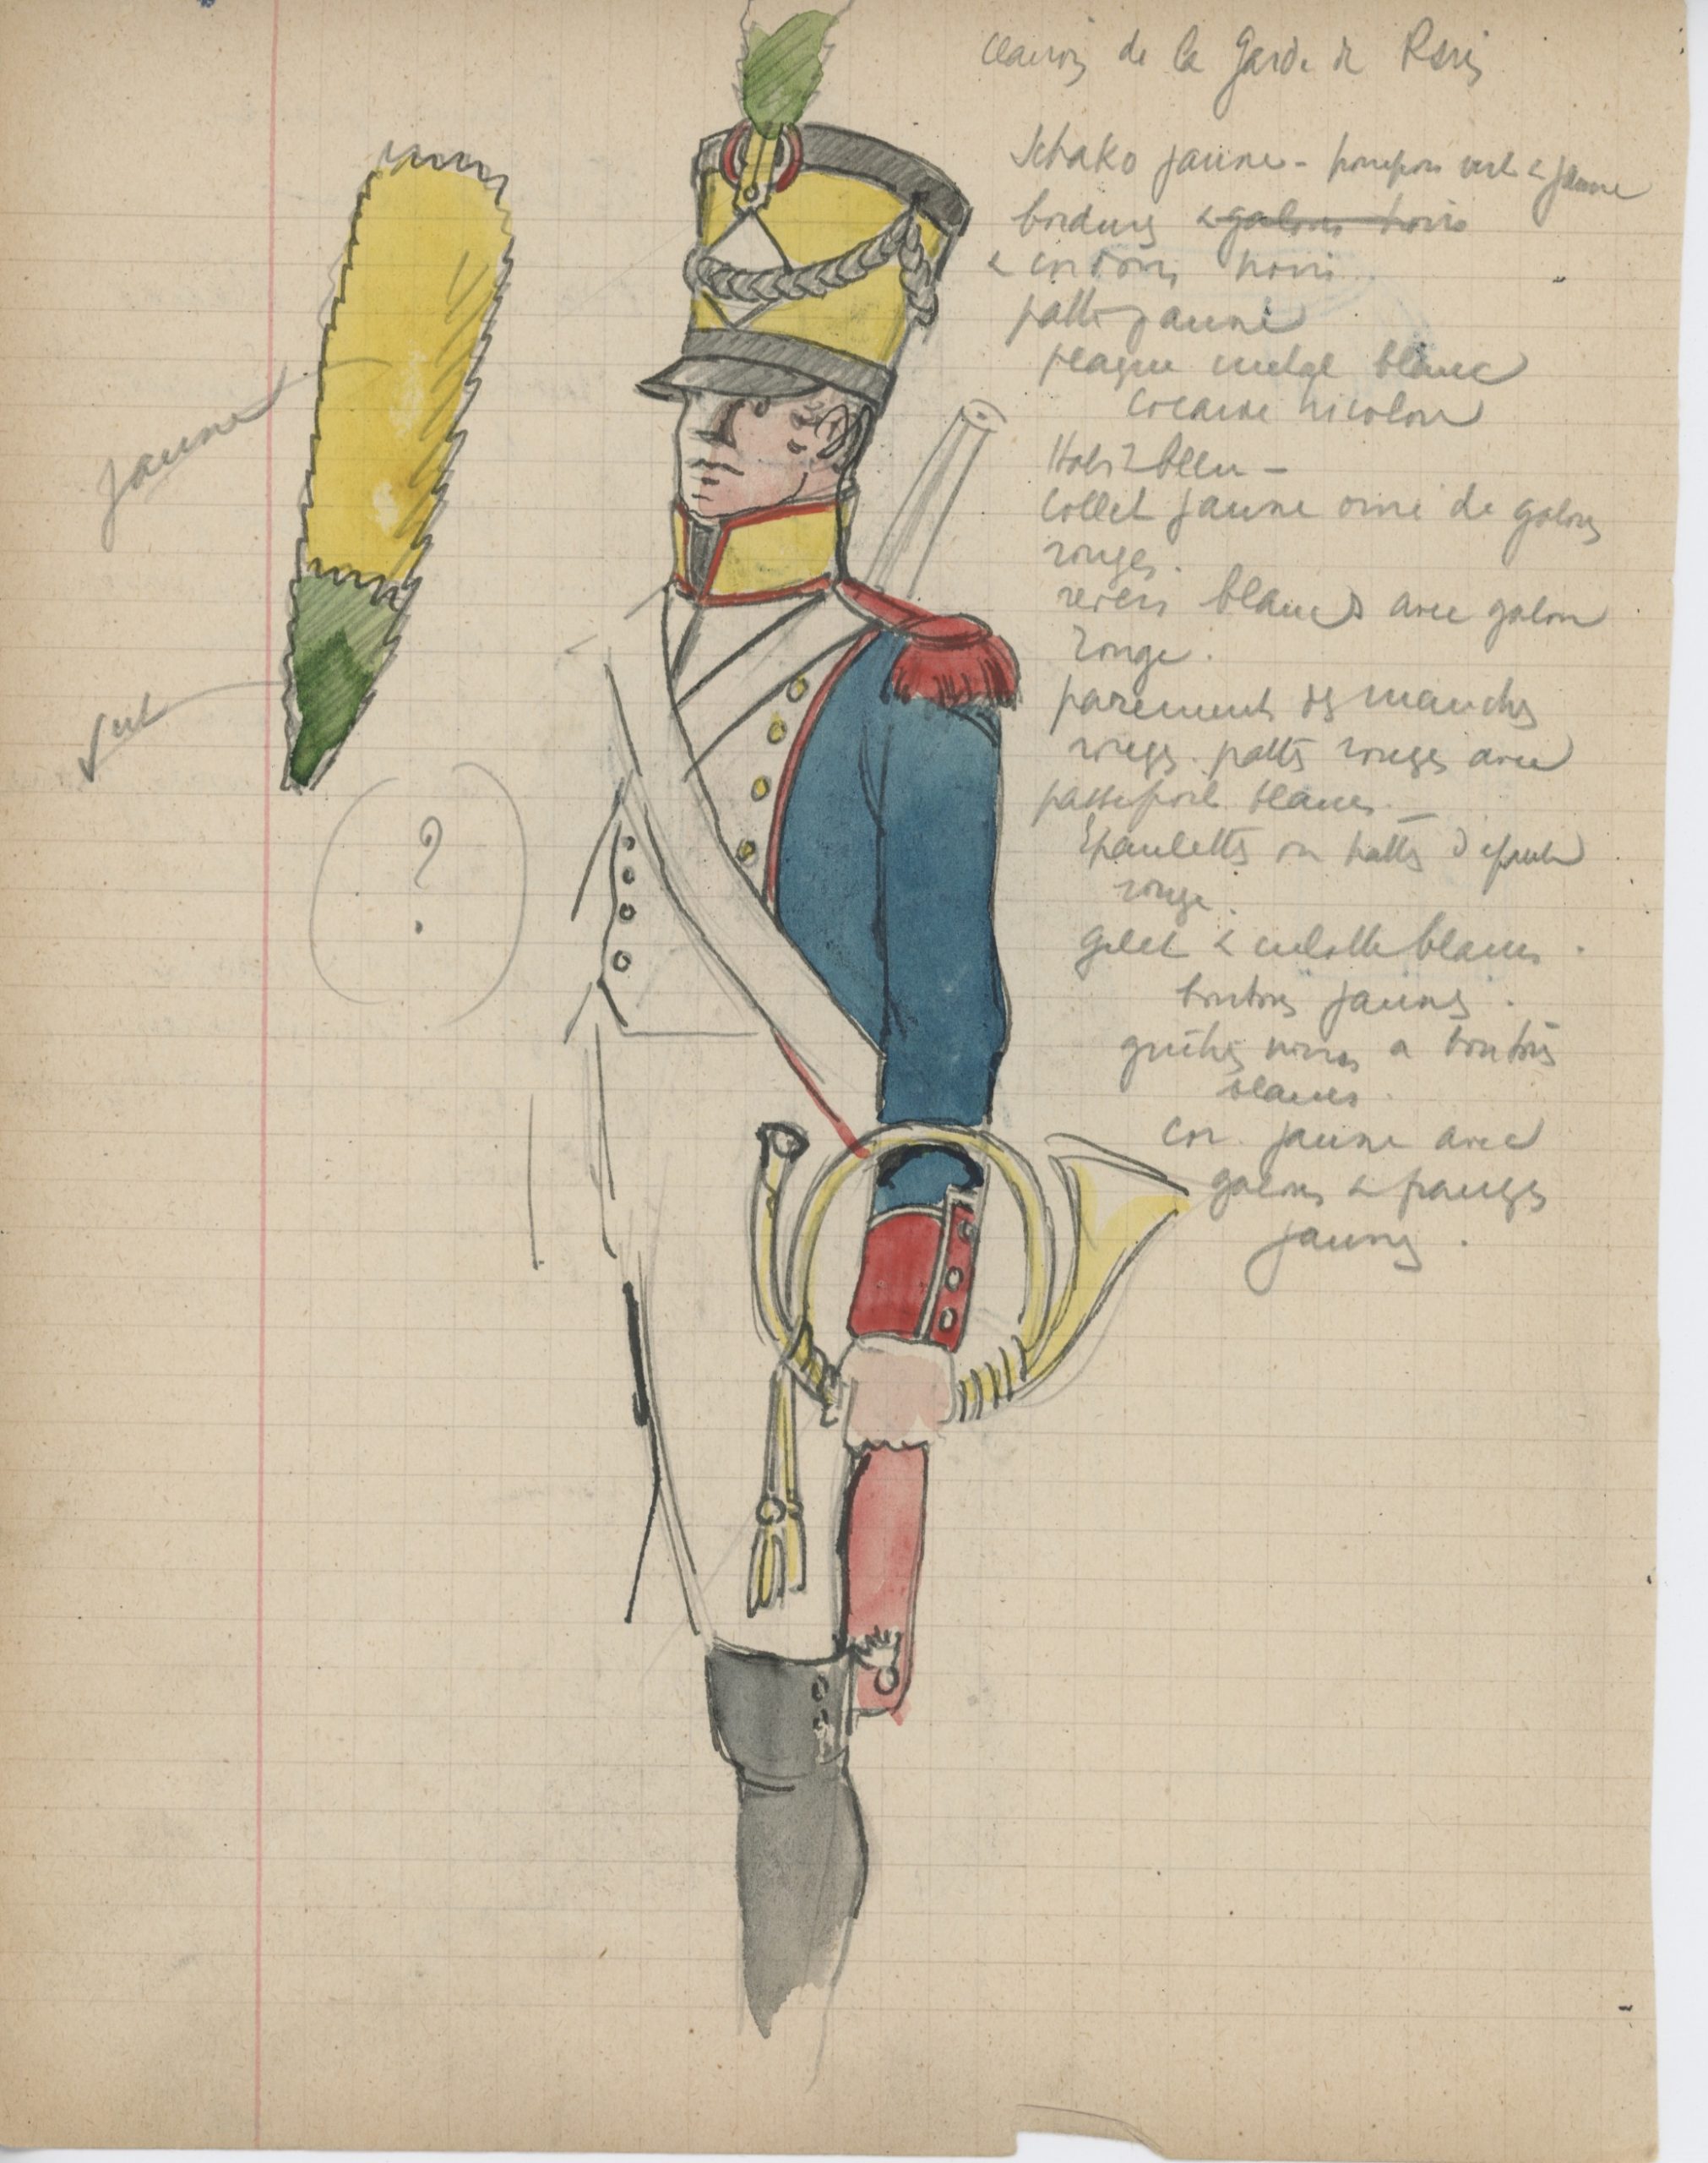 Clairon de la Garde de Paris
Schako jaune - pompon vert & jaune
bordures & galons noirs
& cordons noirs
patte jaune
plaque metal blanc
cocarde tricolore
Habit bleu -
Collet jaune orné de galons
rouges.
revers blancs avec galon
rouge.
parements des manches
rouges. pattes rouges avec
passepoil blancs. -
Epaulettes ou pattes d'epaule
rouge.
gilet & culotte blancs.
boutons jaunes.
guêtres noires a boutons
blancs.
cor jaune avec
galons & franges
jaunes.
jaune
vert
?